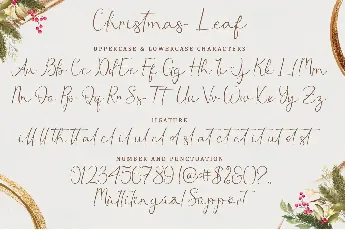 Christmas Leaf
UPPERCASE & LOWERCASE CHARACTERS
Aa Bb Cc Dd Ee Ff Gg Hh Ii Jj Kk Ll Mm
Nn Oo Pp Qq Rr Ss Tt Uu Vv Ww Xx Yy Zz
LIGATURE
NUMBER AND PUNCTUATION
Multilingual Support